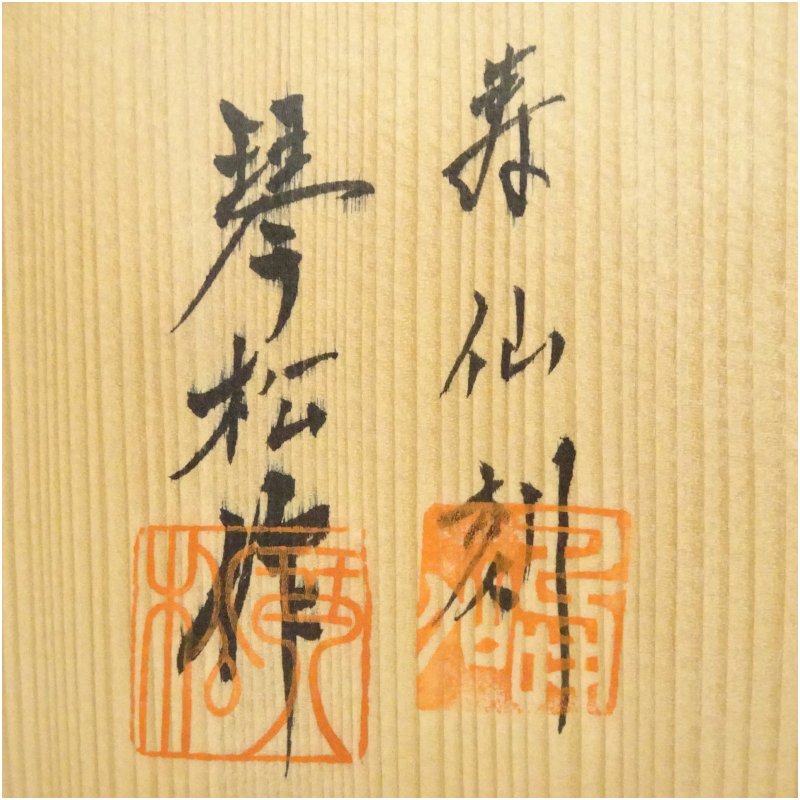 寿仙刻
琴松作